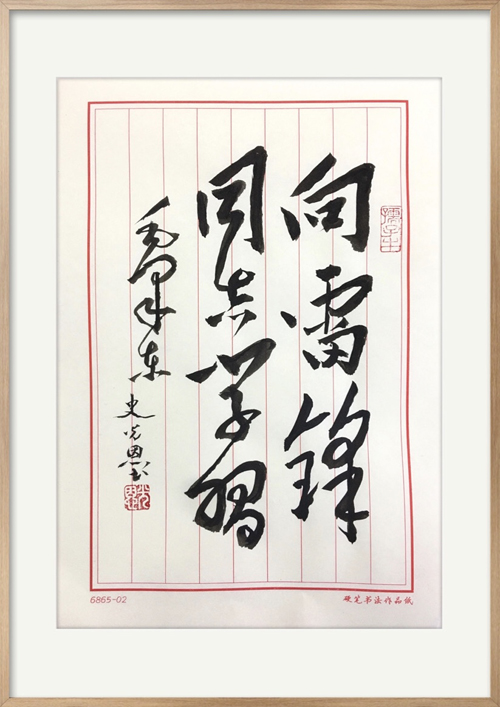 向雷锋
同志学习
毛泽东
史光恩书
6865-02
硬笔书法作品纸